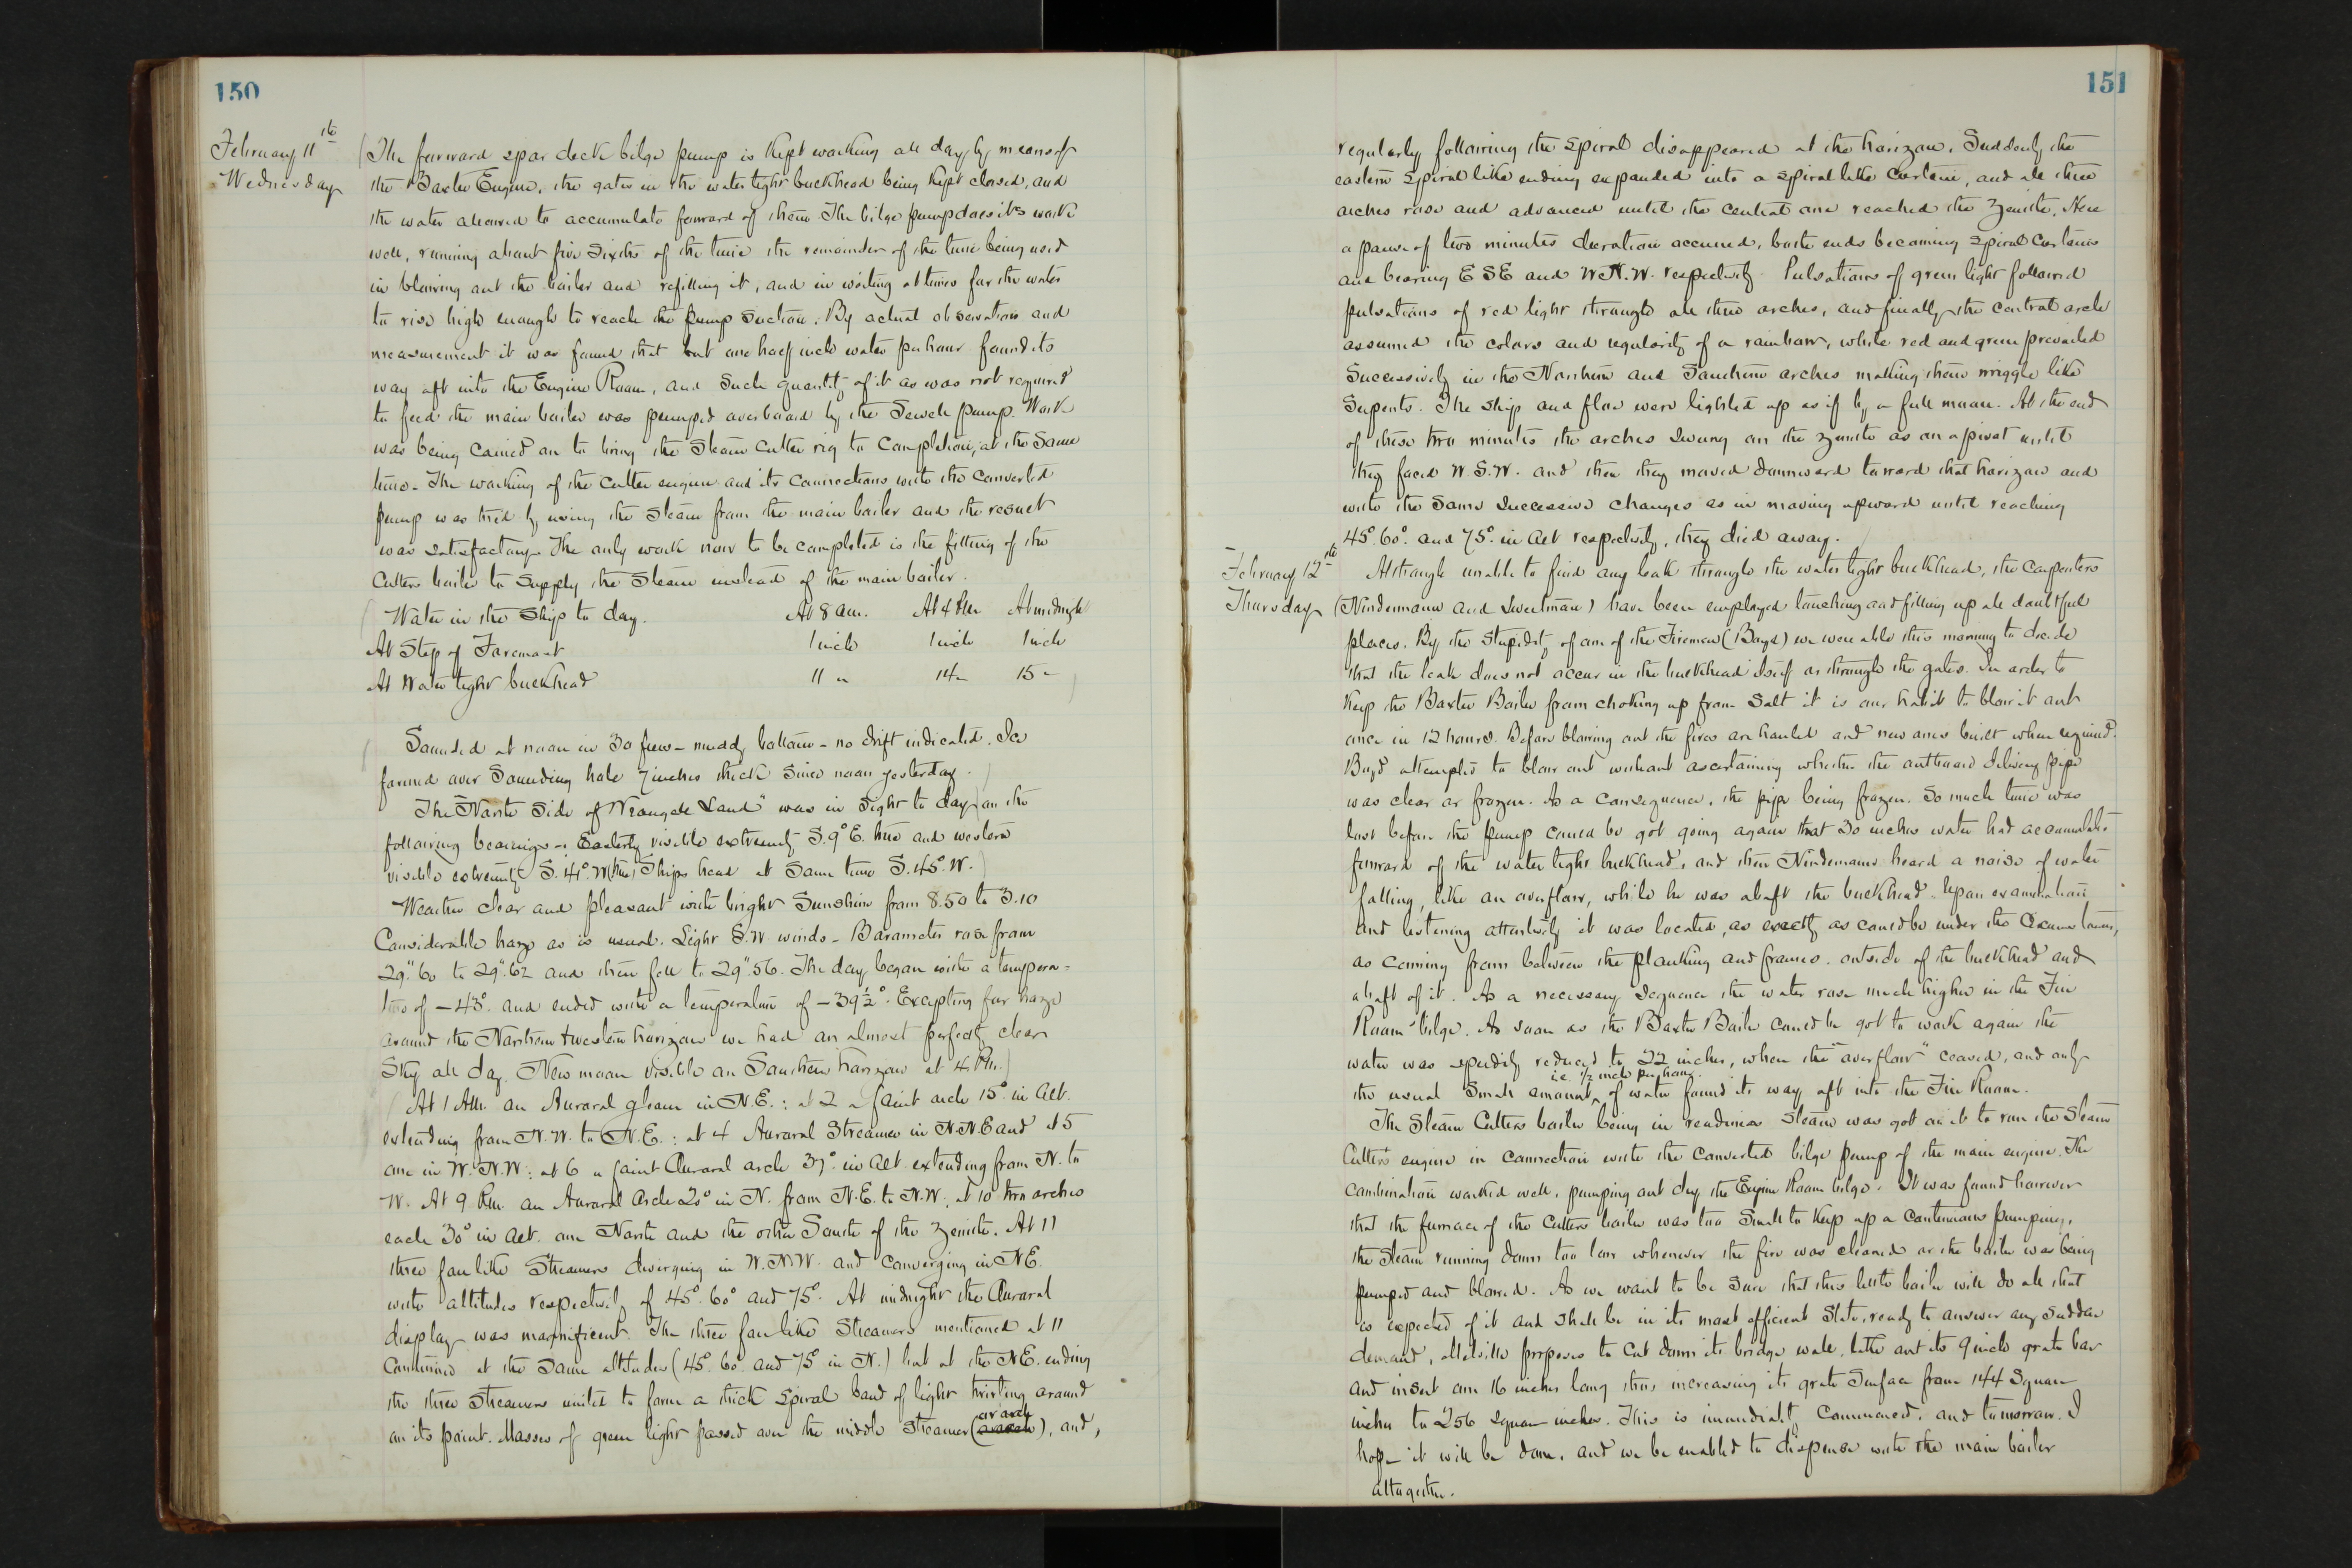 150
February 11th
Wednesday
(The forward spar deck bilge pump is kept working all day by means of
the Baxter Engine, the gates in the water tight buckhead being kept closed, and
the water allowed to accumulate forward of them. The bilge pump does its work
well, running about five sixths of the time the remainder of the time being used
in blowing out the boiler and refilling it, and in waiting at times for the water
to rise high enough to reach the pump suction. By actual observation and
measurement it was found that but one half inch water per hour found its
way aft into the Engine Room, and such quantity of it as was not required
to feed the main boiler was pumped overboard by the Sewell pump. Work
was being carried on to bring the Steam Cutter rig to completion, at the same
time. The working of the Cutter engine and its connections with the converted
pump was tried by using the steam from the main boiler and the result
was satisfactory. The only work now to be completed is the fitting of the
Cutters boiler to supply the steam instead of the main boiler.
(Water in the Ship to day. At 8 am. At 4 Pm At midnight
At Step of Foremast 1 inch 1 inch 1 inch
At Water tight buckhead 11 " 14 " 15 " )
(Sounded at noon in 30 fms - muddy bottom - no drift indicated. Ice
formed over Sounding hole 7 inches thick since noon yesterday.)
The "North Side of Wrangell Land" was in sight to day) on the
following bearings: Easterly visible extremity S. 9° E. true and western
visible extremity S. 41° W (true) Ships head at same time S. 45° W.)
Weather clear and pleasant with bright Sunshine from 8.50 to 3.10
Considerable haze as is usual. Light S.W. winds - Barometer rose from
29".60 to 29".62 and then fell to 29".56. The day began with a tempera=
ture of -43°. and ended with a temperature of -39½°. Excepting for haze
around the Northern & western horizon we had an almost perfectly clear
sky all day. New moon visible on Southern horizon at 4 Pm.)
(At 1 Am. an Auroral gleam in N.E.: at 2 a faint arch 15° in alt.
extending from N.W. to N.E.: at 4 Auroral Streamer in N.N.E and at 5
one in W.N.W: at 6 a faint Auroral arch 37° in alt. extending from N. to
W. At 9 Pm. an Auroral Arch 20° in N. from N.E. to N.W; at 10 two arches
each 30° in alt. one North and the other South of the Zenith. At 11
three fan like Streamers diverging in W.N.W. and converging in NE.
with altitudes respectively of 45°. 60° and 75°. At midnight the Auroral
display was magnificent. The three fan like Streamers mentioned at 11
continued at the same altitudes (45°. 60° and 75° in N.) but at the NE. ending
the three streamers united to form a thick spiral band of light twirling around
or arch
on its point. Masses of green light passed over the middle Streamer ( ), and,
151
regularly following the spiral disappeared at the horizon. Suddenly the
eastern spiral like ending expanded into a spiral like curtain, and all three
arches rose and advanced until the central one reached the Zenith. Here
a pause of two minutes duration occurred, both ends becoming spiral curtains
and bearing ESE and W.N.W. respectively. Pulsations of green light followed
pulsations of red light through all three arches, and finally the central arch
assumed the colors and regularity of a rainbow, while red and green prevailed
successively in the Northern and Southern arches making them wriggle like
Serpents. The ship and floe were lighted up as if by a full moon. At the end
of these two minutes the arches swung on the zenith as on a pivot until
they faced W.S.W. and then they moved downward toward that horizon and
with the same successive changes as in moving upward until reaching
45°. 60°. and 75°. in alt respectively, they died away.
February 12th
Thursday
Although unable to find any leak through the water tight buckhead, the Carpenters
(Nindemann and Sweetman) have been employed touching and filling up all doubtful
places. By the stupidity of one of the Firemen (Boyd) we were able this morning to decide
that the leak does not occur in the buckhead itself or through the gates. In order to
keep the Baxter Boiler from choking up from Salt it is our habit to blow it out
once in 12 hours. Before blowing out the fires are hauled and new ones built when required.
Boyd attempted to blow out without ascertaining whether the outboard delivery pipe
was clear or frozen. As a consequence, the pipe being frozen. So much time was
lost before the pump could be got going again that 30 inches water had accumulated
forward of the water tight buckhead, and then Nindemann heard a noise of water
falling, like an overflow, while he was abaft the buckhead. Upon examination
and listening attentively it was located, as exactly as could be under the Circumstances,
as coming from between the planking and frames. outside of the buckhead and
abaft of it. As a necessary sequence the water rose much higher in the Fire
Room bilge. As soon as the Baxter Boiler could be got to work again the
water was speedily reduced to 22 inches, when the "overflow" ceased, and only
i.e. 1/2 inch per hour.
the usual small amount ^ of water found its way aft into the Fire Room.
The Steam Cutters boiler being in readiness steam was got on it to run the Steam
Cutters engine in connection with the converted bilge pump of the main engine. The
Combination worked well, pumping out dry the Engine Room bilge. It was found however
that the furnace of the Cutters boiler was too small to keep up a continuous pumping,
the steam running down too low whenever the fire was cleaned or the boiler was being
pumped and blowed. As we want to be sure that this little boiler will do all that
is expected of it and shall be in its most efficient state, ready to answer any sudden
demand, Melville proposes to cut down its bridge wall, take out its 9 inch grate bar
and insert one 16 inches long thus increasing its grate surface from 144 square
inches to 256 square inches. This is immediately commenced, and tomorrow, I
hope it will be done, and we be enabled to dispense with the main boiler
altogether.